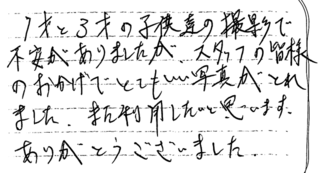 7才と3才の子供達の撮影で
不安がありましたが、スタッフの皆様
のおかげでとてもいい写真がとれ
ました。また利用したいと思います。
ありがとうございました。